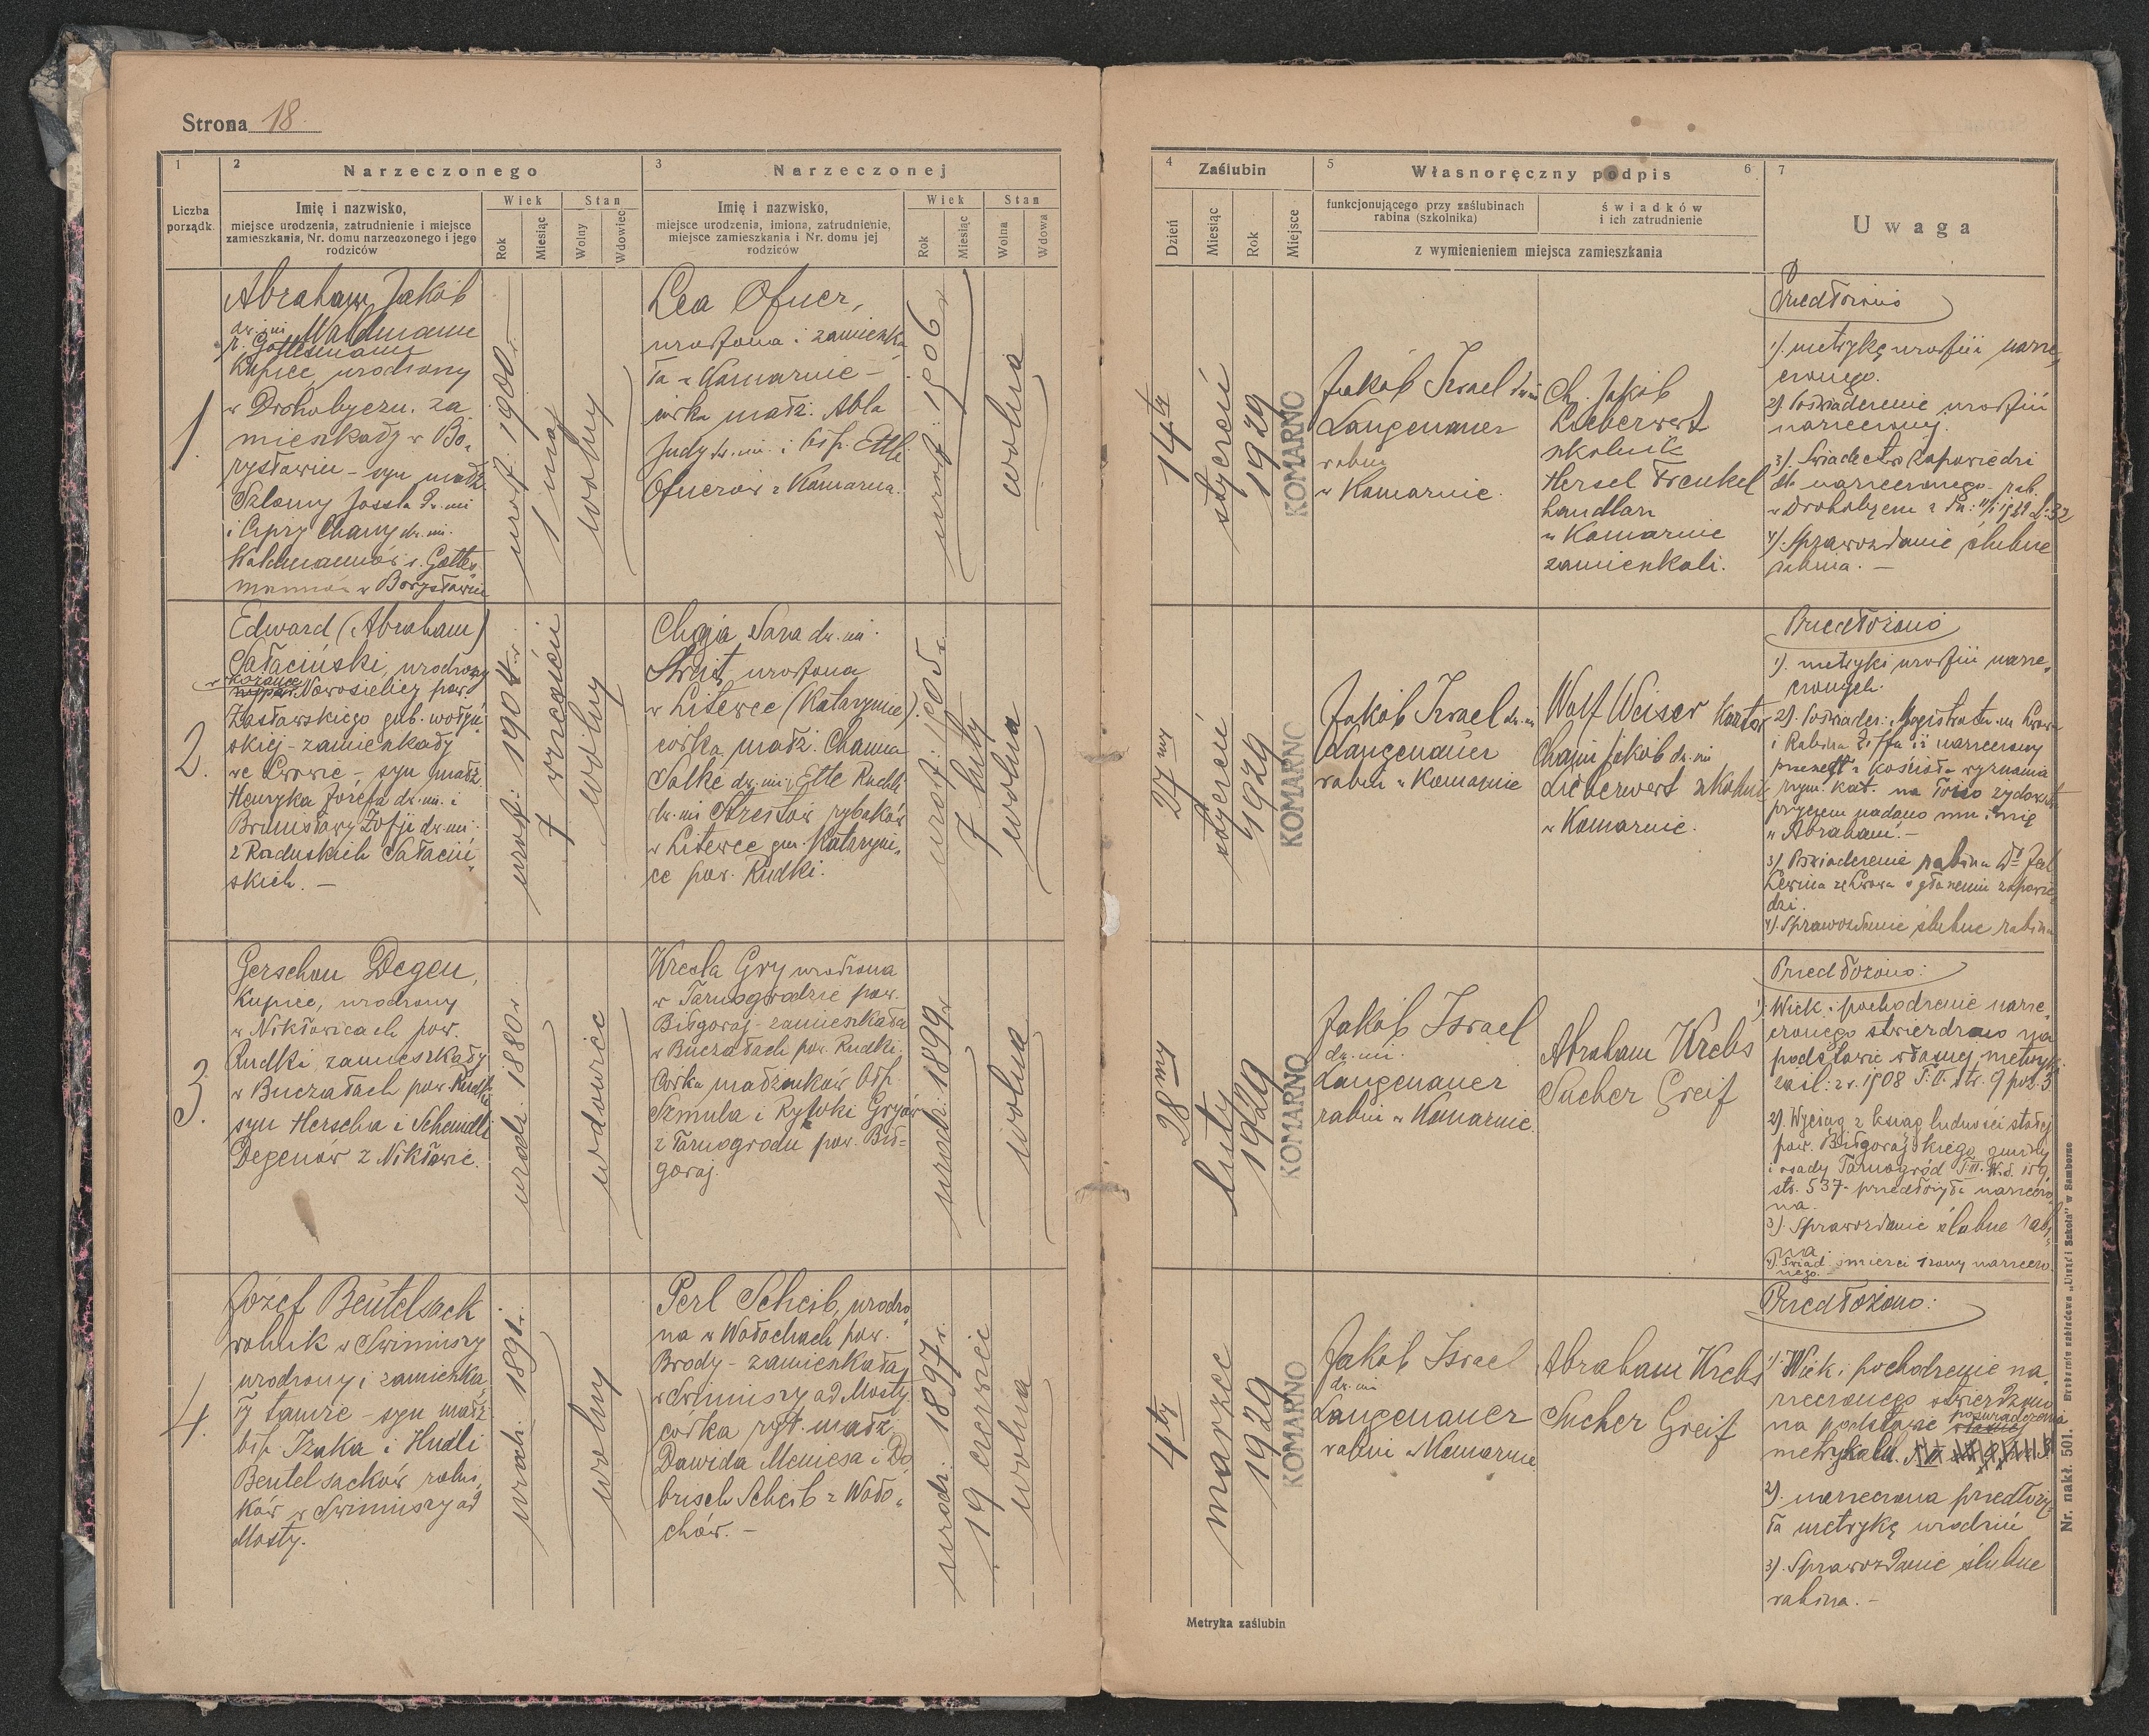 Strona 18.
1
2 Narzeczonego
3 Narzeczonej
Liczba porządk.
Imię i nazwisko,
miejsce urodzenia, zatrudnienie i miejsce
zamieszkania, Nr. domu narzeczonego i jego
rodziców
Wiek
Stan
Rok
Miesiąc
Wolny
Wdowiec
Imię i nazwisko,
miejsce urodzenia, imiona, zatrudnienie,
miejsce zamieszkania i Nr. domu jej
rodziców
Wiek
Stan
Rok
Miesiąc
Wolna
Wdowa
1.
Abraham Jakób
dw. im. Waldmann
r. Gottesmann
Kupiec urodzony
w Drohobyczu. za
mieszkały w Bo„
rysławiu – syn małż
Szlomy Jossla dw. im
i Cipry Chany dw. im.
Waldmannów r. Gottes„
mannów w Borysławiu
urodz. 1900 r.
1 maj
wolny
Lea Ofner,
urodzona i zamieszka
ła w Komarnie –
córka małż. Abla
Judy dw. im. i bśp. Etli
Ofnerów z Komarna.
urodz. 1906 r
wolna
2.
Edward (Abraham)
Sałaciński, urodzony
Nowosielicy pow.
Zasławskiego gub. wołyń„
skiej – zamieszkały
we Lwowie – syn małż.
Henryka Józefa dw. im. i
Bronisławy Zofji dw. im.
z Raduskich Sałaciń„
skich. –
urodz: 1904 r.
7 wrzesień
wolny
Chaja Sara dw. im.
Streit urodzona
w Litewce (Katarynice).
córka małż. Chaima
Salke dw. im. i Ette Ruchli
dw. im Streitów rybaków
w Litewce gm. Kataryni„
ce pow. Rudki.
7 luty
wolna
3.
Gerschon Degen,
Kupiec, urodzony
w Nikłowicach pow.
Rudki, zamieszkały
w Buczałach pow. Rudki
syn Herscha i Scheindli
Degenów z Nikłowic.
urodz. 1880 r.
wdowiec
Kresla Gry urodzona
w Tarnogrodzie pow.
Biłgoraj – zamieszkała
w Buczałach pow. Rudki.
Córka małżonków bśp.
Szmula i Rywki Gryów
z Tarnogrodu pow. Bił=
goraj.
urodz. 1899 r
wolna
4.
Józef Beutelsack
rolnik w
urodzony i zamieszka„
ły tamże – syn małż.
bśp. Izaka i Hudli
Beutelsacków rolni„
ków w
Mosty.
urodz. 1891 r.
wolny
Perl Scheib, urodzo
na w Wołochach pow.
Brody – zamieszkała
ad Mosty
córka ryt. małż.
Dawida Meniesa i Do
brisch Scheib z Woło„
chów. –
urodz. 1897 r.
19 czerwiec
wolna
4 Zaślubin
5 Własnoręczny podpis 6
7
Dzień
Miesiąc
Rok
Miejsce
funkcjonującego przy zaślubinach
rabina (szkolnika)
świadków
i ich zatrudnienie
z wymienieniem miejsca zamieszkania
Uwaga
14ty
styczeń
1929
KOMARNO
Jakób Izrael dw. im
Langenauer
rabin
w Komarnie.
Ch. Jakób
Lieberwert
szkolnik
Hersel Frenkel
handlarz
w Komarnie
zamieszkali.
Przedłożono
1). metrykę urodzin narze„
czonego.
2). Poświadczenie urodzin
narzeczonej.
3). Świadectwo zapowiedzi
dla narzeczonego rab.
w Drohobyczu z dn: 11/I 1929 L: 32
4). Sprawozdanie ślubne
rabina. –
27my
styczeń
1929
KOMARNO
Jakób Izrael dw. im
Langenauer
rabin w Komarnie
Wolf Weiser Kantor
Chaim Jakób dw. im
Lieberwert szkolnik
w Komarnie.
Przedłożono
1). metryki urodzin narze„
czonych.
2). Poświadcz: Magistratu m. Lwowa
i Rabina Ziffa iż narzeczony
przeszedł z kościoła wyznania
rzym. kat. na łono żydowstwa
przyczem nadano mu imię
„Abraham". –
3). Poświadczenie rabina Dr Jech.
Lewina ze Lwowa o głoszeniu zapowie„
dzi.
4). Sprawozdanie ślubne rabina
28my
luty
1929
KOMARNO
Jakób Israel
dw. im.
Langenauer
rabin w Komarnie.
Abraham Krebs
Sucher Greif
Przedłożono:
1). Wiek i pochodzenie narze„
czonego stwierdzono na
podstawie własnej metryki
zaśl: z r. 1908 T. II. str. 9 poz. 3
2). Wyciąg z ksiąg ludności stałej
pow. Biłgorajskiego gminy
i osady Tarnogród T. III. № d. 159,
str. 537 – przedłożyła narzeczo„
na.
3). Sprawozdanie ślubne rabi„
na
4). Świad. śmierci żony narzeczo
nego.
4ty
marzec
1929
KOMARNO
Jakób Israel
dw. im
Langenauer
rabin w Komarnie
Abraham Krebs
Sucher Greif
Przedłożono:
1). Wiek i pochodzenie na„
rzeczonego stwierdzono
na podstawie poświadczenia
metrykaln.
2). narzeczona przedłoży„
ła metrykę urodzin
3). Sprawozdanie ślubne
rabina. –
Metryka zaślubin
Nr. nakł. 501. Drukarnia nakładowa „Urząd i Szkoła" w Samborze